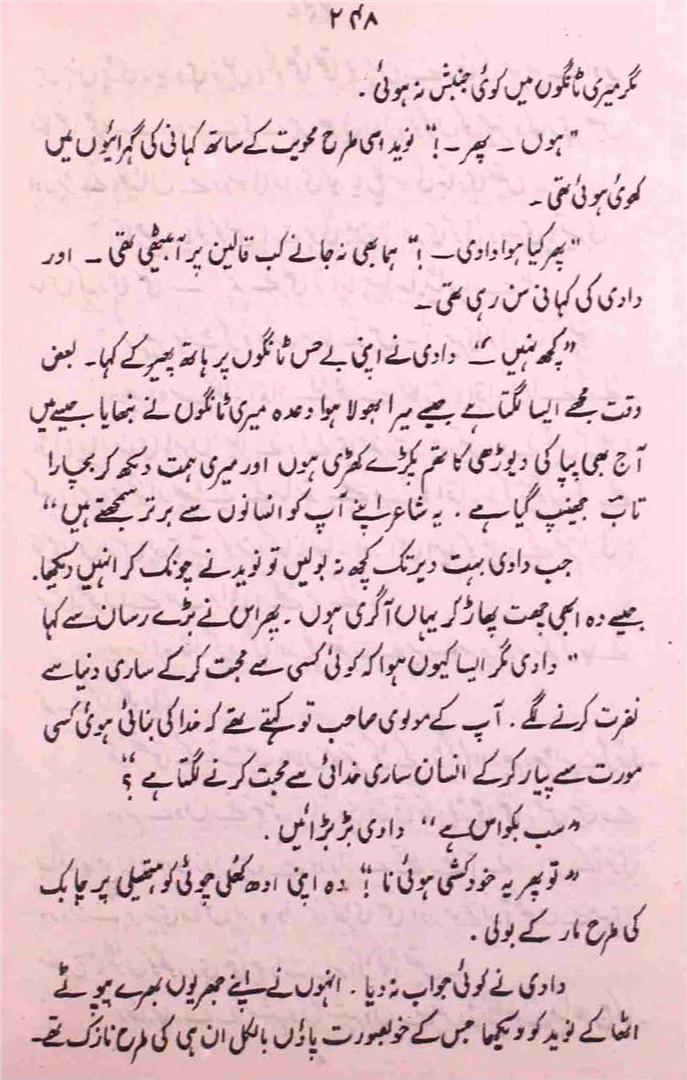 ۲۴۸
مگر میری ٹانگوں میں کوئی جنبش نہ ہوئی .
"ہوں ۔ پھر ۔!" نوید اسی طرح محویت کے ساتھ کہانی کی گہرائیوں میں
کھوئی ہوئی تھی ۔
"پھر کیا ہوا دادی ۔!" ہما بھی نہ جانے کب قالین پر آ بیٹھی تھی ۔ اور
دادی کی کہانی سن رہی تھی ۔
"کچھ نہیں ۔" دادی نے اپنی بے حس ٹانگوں پر ہاتھ پھیر کے کہا۔ بعض
وقت مجھے ایسا لگتا ہے جیسے میرا بھولا ہوا وعدہ میری ٹانگوں نے نبھایا جیسے میں
آج بھی پیا کی دیوڑھی کا تھم پکڑے کھڑی ہوں اور میری ہمت دیکھ کر بچارا
تاباں جھینپ گیا ہے . یہ شاعر اپنے آپ کو انسانوں سے برتر سمجھتے ہیں"
جب دادی بہت دیر تک کچھ نہ بولیں تو نوید نے چونک کر انہیں دیکھا.
جیسے وہ ابھی چھت پھاڑ کر یہاں آ گری ہوں . پھر اس نے بڑے رسان سے کہا
" دادی مگر ایسا کیوں ہوا کہ کوئی کسی سے محبت کر کے ساری دنیا سے
نفرت کرنے لگے . آپ کے مولوی صاحب تو کہتے تھے کہ خدا کی بنائی ہوئی کسی
مورت سے پیار کر کے انسان ساری خدائی سے محبت کرنے لگتا ہے ؟"
"سب بکواس ہے" دادی بڑبڑائیں .
"تو پھر یہ خودکشی ہوئی نا !" وہ اپنی ادھ کھلی چوٹی کو ہتھیلی پر چابک
کی طرح مار کے بولی .
دادی نے کوئی جواب نہ دیا . انہوں نے اپنے جھریوں بھرے پپوٹے
اٹھا کے نوید کو دیکھا جس کے خوبصورت پاؤں بالکل ان ہی کی طرح نازک تھے۔